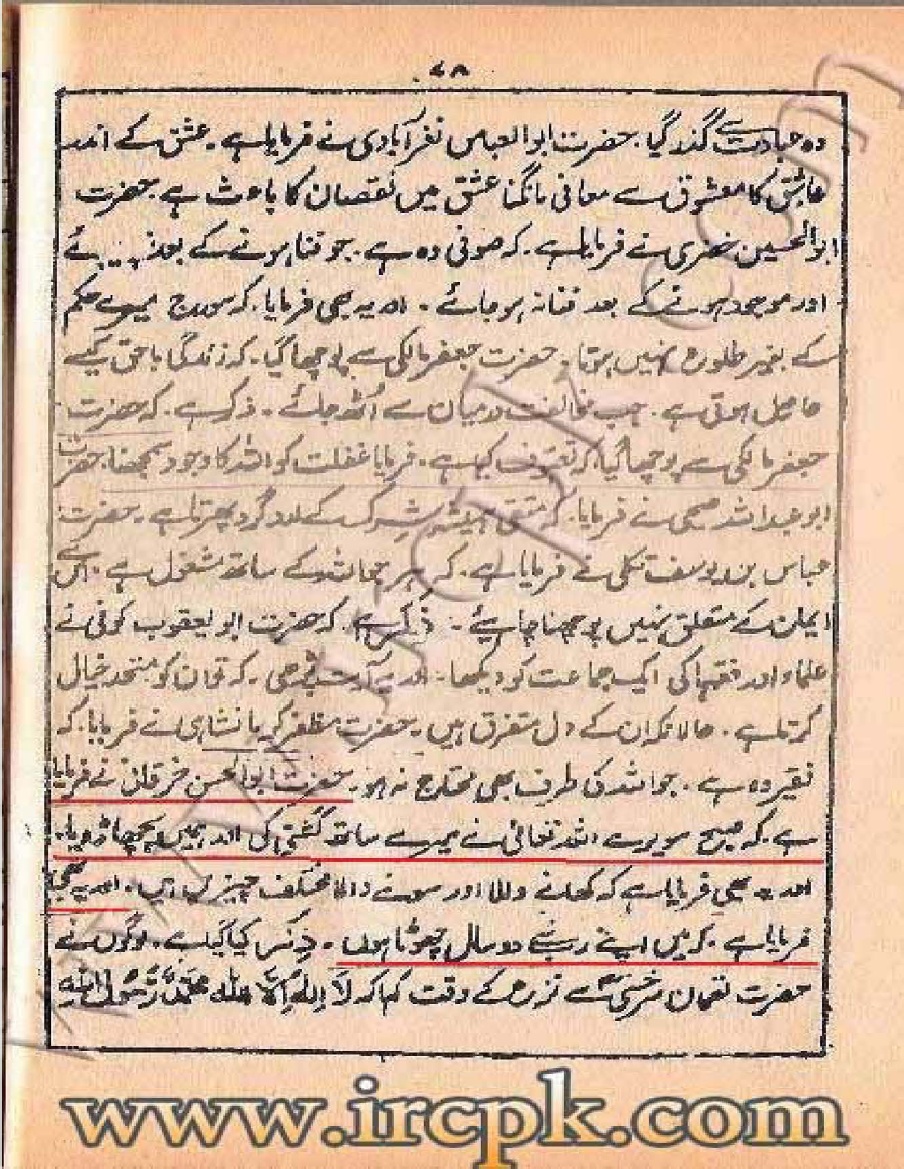 ۷۸
وہ عبادت سے گذر گیا۔ حضرت ابو العباس نفر آبادی نے فرمایا ہے۔ عشق کے اندر
عاشق کا معشوق سے معافی مانگنا عشق میں نقصان کا باعث ہے۔ حضرت
ابو الحسین خضری نے فرمایا ہے۔ کہ صوفی وہ ہے۔ جو فنا ہونے کے بعد
اور موجود ہونے کے بعد فنا نہ ہو جائے۔ اور یہ بھی فرمایا۔ کہ سورج میرے حکم
کے بغیر طلوع نہیں ہوتا۔ حضرت جعفر مالکی سے پوچھا گیا۔ کہ زندگی باحق کیسے
حاصل ہوتی ہے۔ جب مخالفت درمیان سے اُٹھ جائے۔ ذکر ہے۔ کہ حضرت
جعفر مالکی سے پوچھا گیا کہ تصوف کیا ہے۔ فرمایا غفلت کو اللہ کا وجود سمجھنا۔ حضرت
ابو عبد اللہ صحی نے فرمایا۔ کہ متقی ہمیشہ شرک کے ارد گرد پھرتا ہے۔ حضرت
عباس بن یوسف تکلی نے فرمایا ہے۔ کہ ہر جو اللہ کے ساتھ مشغول ہے۔ اس سے
ایمان کے متعلق نہیں پوچھنا چاہیئے۔ ذکر ہے۔ کہ حضرت ابو یعقوب کوفی نے
علماء اور فقہا کی ایک جماعت کو دیکھا۔ اور یہ آیت پڑھی۔ کہ تو ان کو متحد خیال
کرتا ہے۔ حالانکہ ان کے دل متفرق ہیں۔ حضرت مظفر کرمانشاہی نے فرمایا۔ کہ
فقیر وہ ہے۔ جو اللہ کی طرف بھی محتاج نہ ہو۔ حضرت ابو الحسن خرقانی نے فرمایا
ہے۔ کہ صبح سویرے اللہ تعالیٰ نے میرے ساتھ کشتی کی اور ہمیں پچھاڑ دیا۔
اور یہ بھی فرمایا ہے کہ کھانے والا اور سونے والا مختلف چیزیں ہیں۔ اور یہ بھی
فرمایا ہے۔ کہ میں اپنے رب سے دو سال چھوٹا ہوں۔ ذکر کیا گیا ہے۔ لوگوں نے
حضرت لقمان سرخسی سے نزع کے وقت کہا کہ لَا اِلٰهَ اِلَّا اللّٰهُ مُحَمَّدٌ رَّسُوْلُ اللّٰهِ
www.ircpk.com
www.ircpk.com